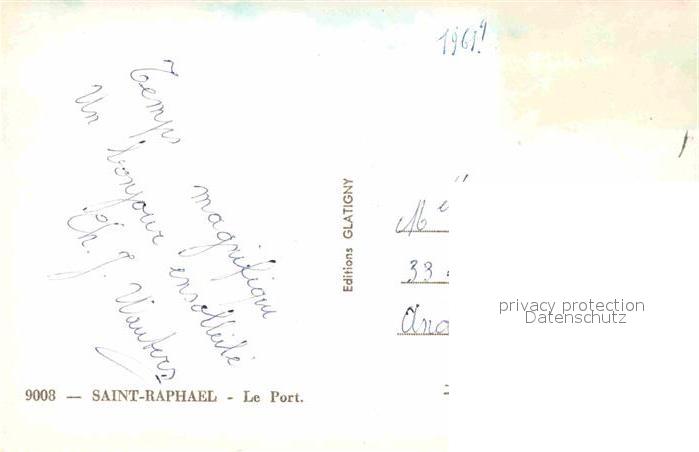 1961
Temps magnifique
Un bonjour ensolleité
Ch. J. Wauters
Editions GLATIGNY
Me
33
privacy protection
Datenschutz
9008 — SAINT-RAPHAEL - Le Port.